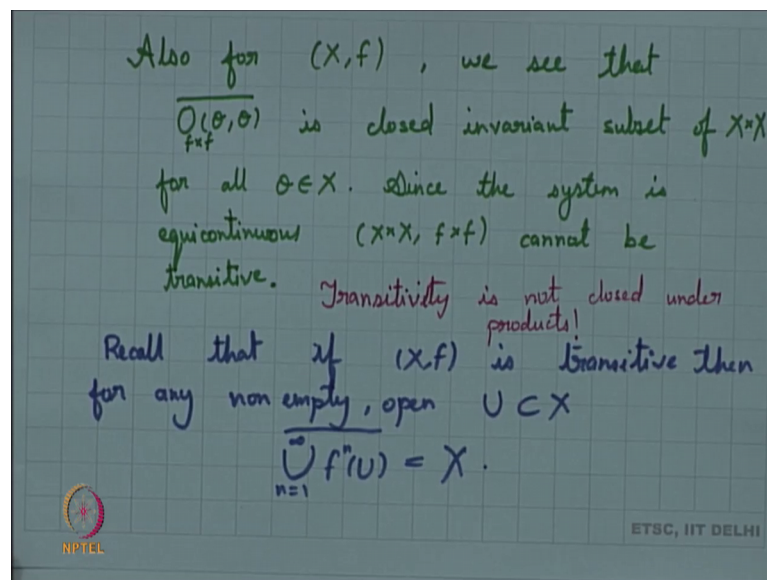 Also for (X, f) , we see that
\overline{O_{f×f}(θ, θ)} is closed invariant subset of X×X
for all θ ∈ X. Since the system is
equicontinuous (X×X, f×f) cannot be
transitive. Transitivity is not closed under
products!
Recall that if (X,f) is transitive then
for any non empty, open U ⊂ X
\overline{⋃_{n=1}^{∞} f^n(U)} = X .
NPTEL
ETSC, IIT DELHI